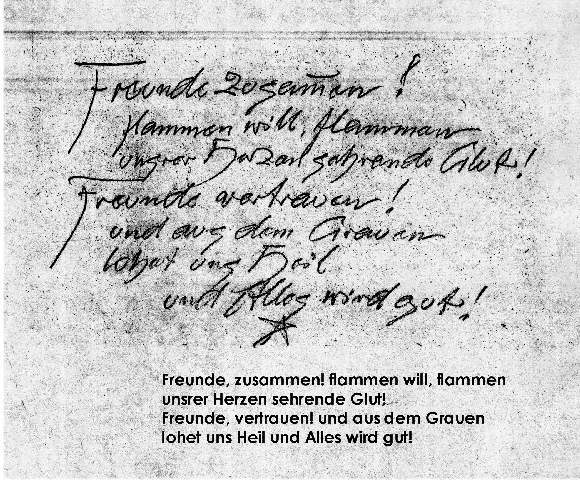 Freunde zusam̄en!
flammen will, flammen
unsrer Herzen sehrende Glut!
Freunde vertrauen!
und aus dem Grauen
lohet uns Heil
und Alles wird gut!
Freunde, zusammen! flammen will, flammen
unsrer Herzen sehrende Glut!
Freunde, vertrauen! und aus dem Grauen
lohet uns Heil und Alles wird gut!